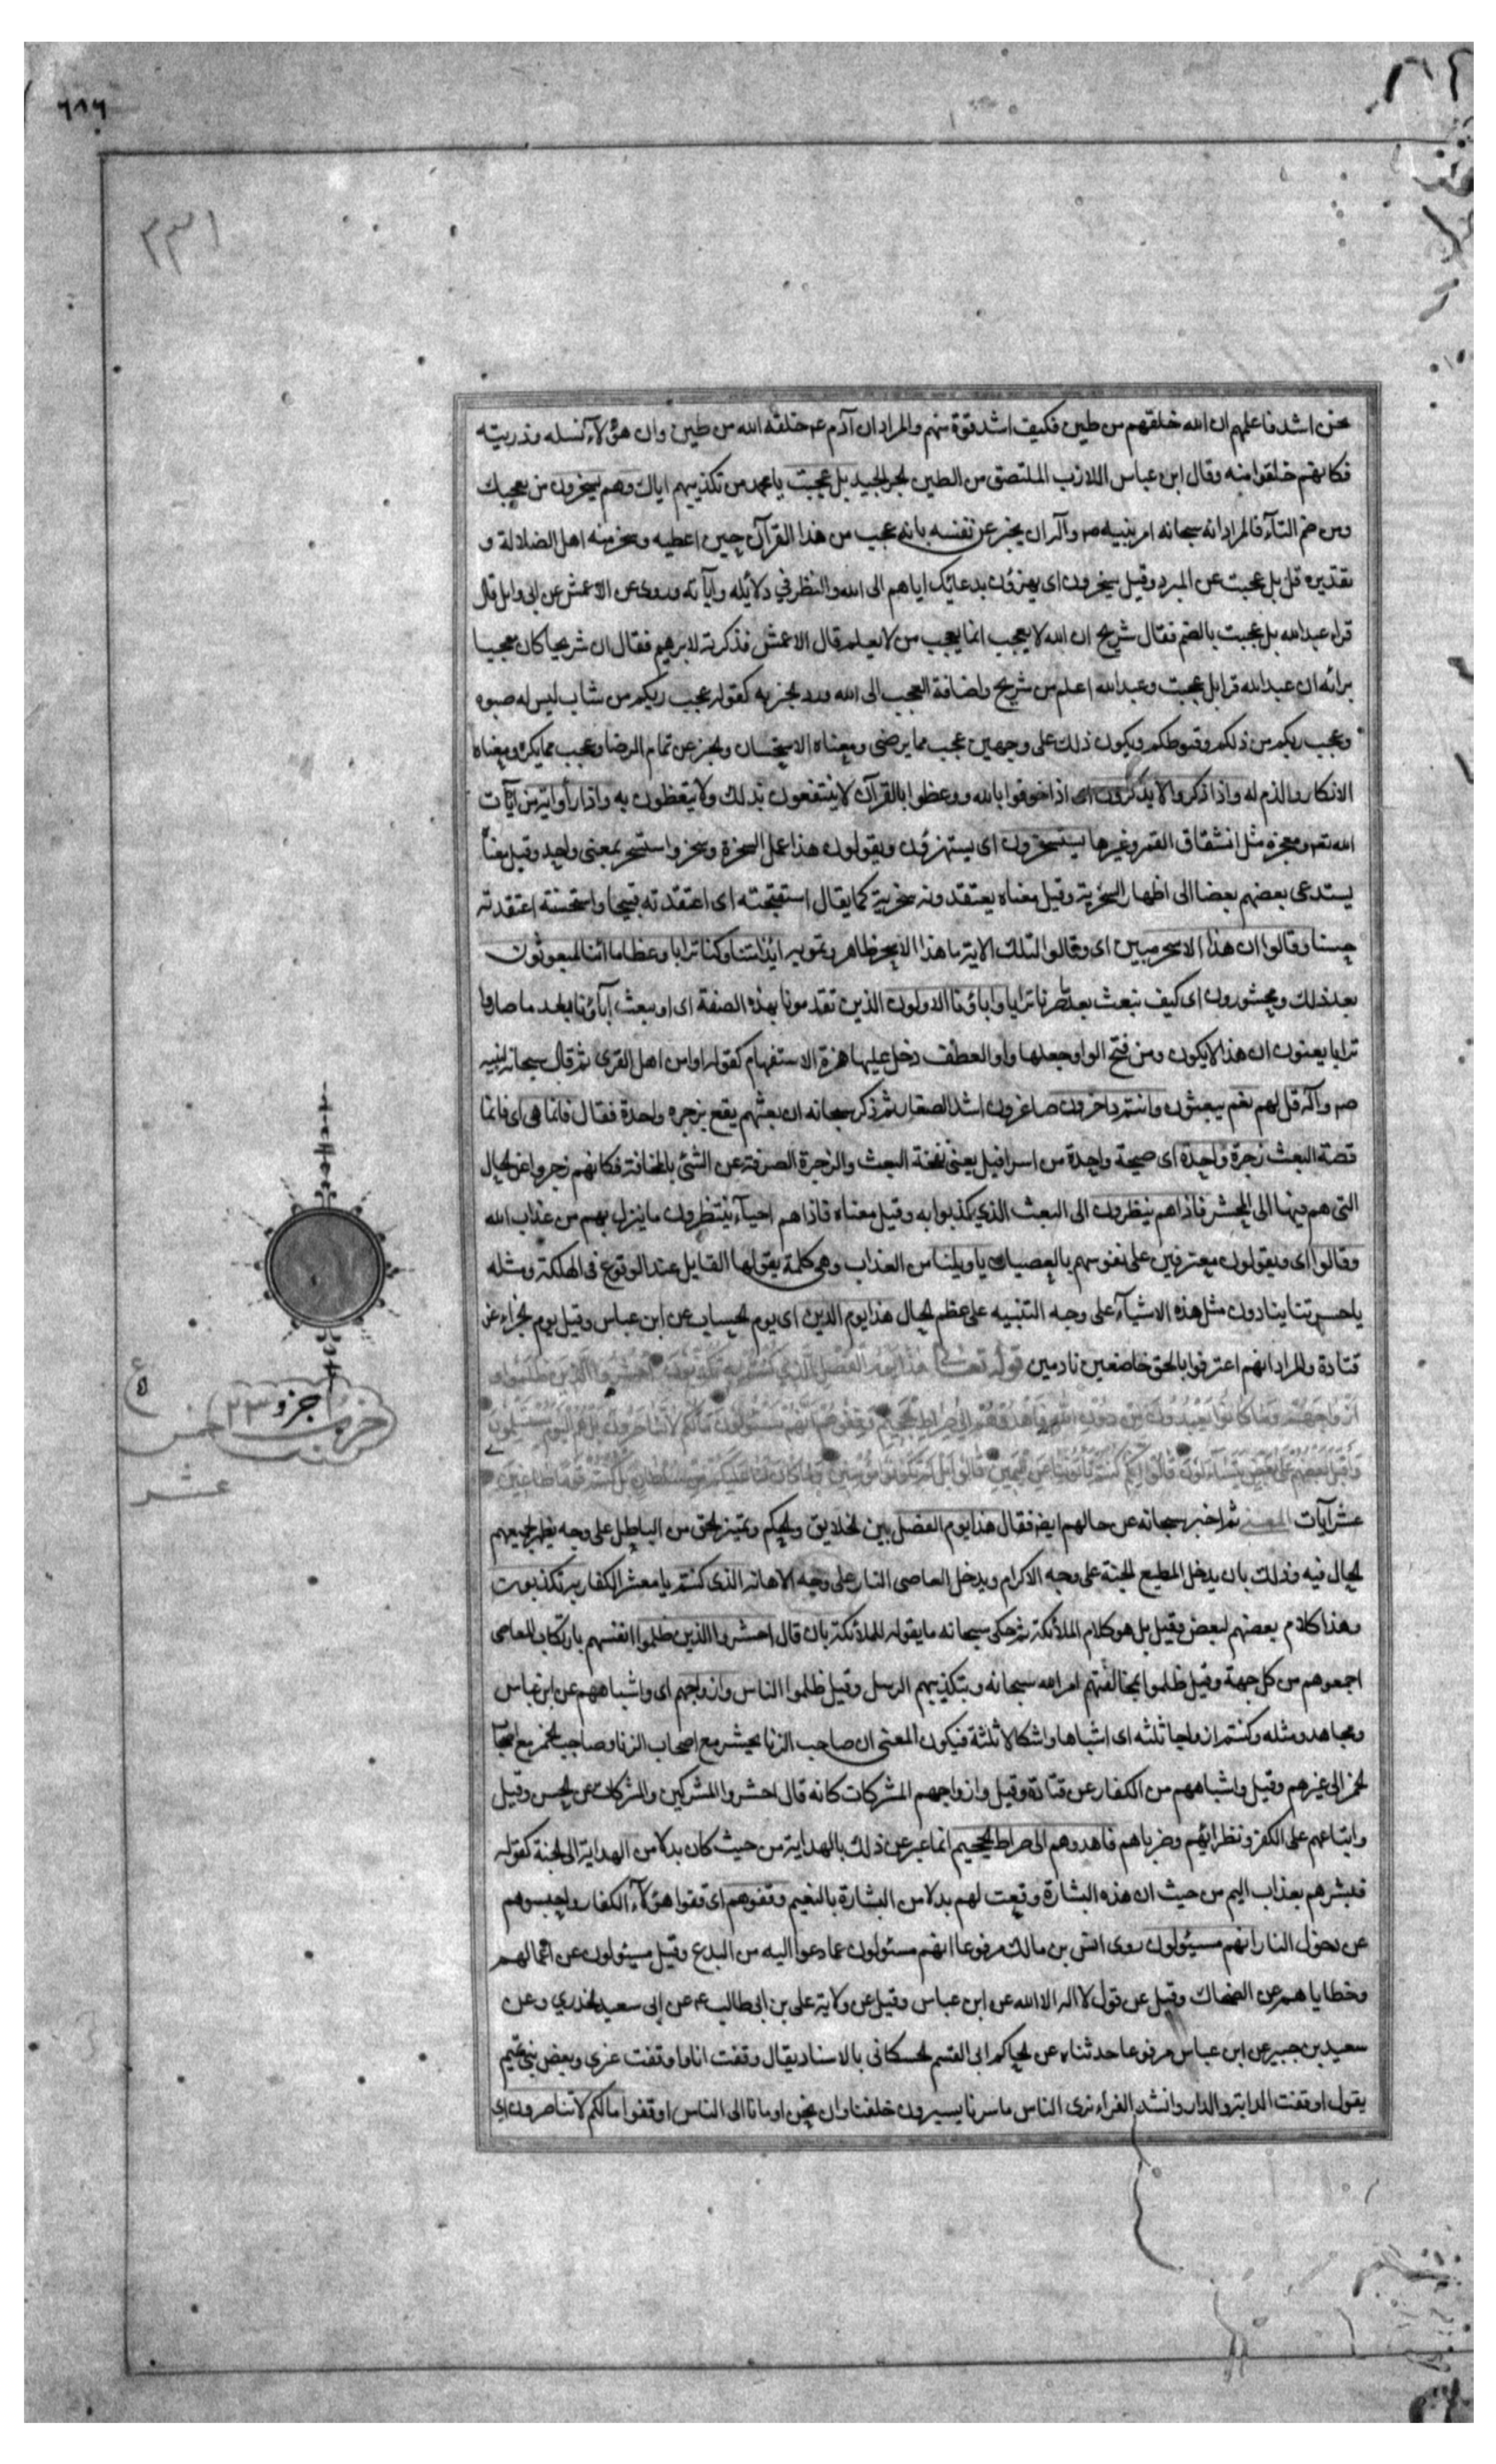 ٦٨٦
٣٣١
نحن اشد فاعلمهم ان الله خلقهم من طين فكيف اشد قوة منهم والمراد ان آدم عم خلقه الله من طين وان هؤلآء نسله وذريته
فكانهم خلقوا منه وقال ابن عباس اللازب الملتصق من الطين الحر الجيد بل عجبت يا محمد من تكذيبهم اياك وهم يسخرون من تعجبك
ومن ضم التآء فالمراد انه سبحانه امر نبيه صم وآله ان يخبر عن نفسه بانه عجب من هذا القرآن حين اعطيه وسخر منه اهل الضلالة و
تقديره قل بل عجبت عن المبرد وقيل يسخرون اى يهزؤن بدعائك اياهم الى الله والنظر في دلائله وآياته وروى عن الاعمش عن ابى وايل قال
قراء عبد الله بل عجبت بالضم فقال شريح ان الله لا يعجب انما يعجب من لا يعلم قال الاعمش فذكرته لابرهيم فقال ان شريحا كان معجبا
برائه ان عبد الله قرا بل عجبت وعبد الله اعلم من شريح واضافة العجب الى الله ورد الخبر به كقوله عجب ربكم من شاب ليس له صبوه
وعجب ربكم من ذلكم وقنوطكم ويكون ذلك على وجهين عجب مما يرضى ومعناه الاستحسان والخبر عن تمام الرضا وعجب مما يكره ومعناه
الانكار والذم له واذا ذكروا لا يذكرون اى اذا خوفوا بالله ووعظوا بالقرآن لا ينتفعون بذلك ولا يتعظون به واذا رأوا اية من آيات
الله تعم ومعجزه مثل انشقاق القمر وغيرها يستسخرون اى يستهزؤن ويقولون هذا عمل السحرة وسخر واستسخر بمعنى واحد وقيل معناه
يستدعى بعضهم بعضا الى اظهار السخرية وقيل معناه يعتقدونه سخرية كما يقال استقبحته اى اعتقدته قبيحا واستحسنته اعتقدته
حسنا وقالوا ان هذا الا سحر مبين اى وقالوا لتلك الاية ما هذا الا سحر ظاهر وتمويه ائذا متنا وكنا ترابا وعظاما ائنا لمبعوثون
بعد ذلك ومحشورون اى كيف نبعث بعد ما صرنا ترابا واباؤنا الاولون الذين تقدمونا بهذه الصفة اى او يبعث آباؤنا بعد ما صاروا
ترابا يعنون ان هذا لا يكون ومن فتح الواو جعلها واو العطف دخل عليها همزة الاستفهام كقوله او امن اهل القرى ثم قال سبحانه لنبيه
صم وآله قل لهم نعم يبعثون وانتم داخرون صاغرون اشد الصغار ثم ذكر سبحانه ان بعثهم يقع بزجره واحدة فقال فانما هى اى فانما
قصة البعث زجرة واحدة اى صيحة واحدة من اسرافيل يعنى نفخة البعث والزجرة الصرفة عن الشئ بالمخافة فكانهم زجروا عن الحال
التى هم فيها الى المحشر فاذا هم ينظرون الى البعث الذي كذبوا به وقيل معناه فاذا هم احيآء ينتظرون ما ينزل بهم من عذاب الله
وقالوا اى ويقولون معترفين على نفوسهم بالعصيان يا ويلنا من العذاب وهى كلمة يقولها القايل عند الوقوع فى الهلكة ومثله
يا حسرتنا ينادون مثل هذه الاشيآء على وجه التنبيه على عظم الحال هذا يوم الدين اى يوم الحساب عن ابن عباس وقيل يوم الجزاء عن
قتادة والمراد انهم اعترفوا بالحق خاضعين نادمين قوله تعالى هذا يوم الفصل الذي كنتم به تكذبون احشروا الذين ظلموا و
ازواجهم وما كانوا يعبدون من دون الله فاهدوهم الى صراط الجحيم وقفوهم انهم مسئولون ما لكم لا تناصرون بل هم اليوم مستسلمون
واقبل بعضهم على بعض يتساءلون قالوا انكم كنتم تأتوننا عن اليمين قالوا بل لم تكونوا مؤمنين وما كان لنا عليكم من سلطان بل كنتم قوما طاغين
عشر آيات المعنى ثم اخبر سبحانه عن حالهم ايضا فقال هذا يوم الفصل بين الخلايق والحكم وتميز الحق من الباطل على وجه يظهر لجميعهم
الحال فيه وذلك بان يدخل المطيع الجنة على وجه الاكرام ويدخل العاصى النار على وجه الاهانه الذى كنتم يا معشر الكفار به تكذبون
وهذا كلام بعضهم لبعض وقيل بل هو كلام الملائكة ثم حكى سبحانه ما يقوله للملائكة بان قال احشروا الذين ظلموا انفسهم بارتكاب المعاصى
اجمعوهم من كل جهة وقيل ظلموا بمخالفتهم امر الله سبحانه وبتكذيبهم الرسل وقيل ظلموا الناس وازواجهم اى واشباههم عن ابن عباس
ومجاهد ومثله وكنتم ازواجا ثلثه اى اشباها واشكالا ثلثة فيكون المعنى ان صاحب الزنا يحشر مع اصحاب الزنا وصاحب الخمر مع اصحاب
الخمر الى غيرهم وقيل واشباههم من الكفار عن قتادة وقيل وازواجهم المشركات كانه قال احشروا المشركين والمشركات عن الحسن وقيل
واتباعهم على الكفر ونظرائهم وضرباهم فاهدوهم الى صراط الجحيم انما عبر عن ذلك بالهداية من حيث كان بدلا من الهداية الى الجنة كقوله
فبشرهم بعذاب اليم من حيث ان هذه البشارة وقعت لهم بدلا من البشارة بالنعيم وقفوهم اى قفوا هؤلآء الكفار واحبسوهم
عن دخول النار انهم مسئولون روى انس بن مالك مرفوعا انهم مسئولون عما دعوا اليه من البدع وقيل مسئولون عن اعمالهم
وخطاياهم عن الضحاك وقيل عن قول لا اله الا الله عن ابن عباس وقيل عن ولاية على بن ابى طالب عم عن ابى سعيد الخدري وعن
سعيد بن جبير عن ابن عباس مرفوعا حدثناه عن الحاكم ابى القسم الحسكانى بالاسناد يقال وقفت انا واوقفت غيري وبعض بنى تميم
يقول اوقفت الدابة والدار وانشد الفراء ترى الناس ما سرنا يسيرون خلفنا وان نحن اومانا الى الناس اوقفوا ما لكم لا تناصرون اى
جزو ٢٣
حزب
خمس
عشر